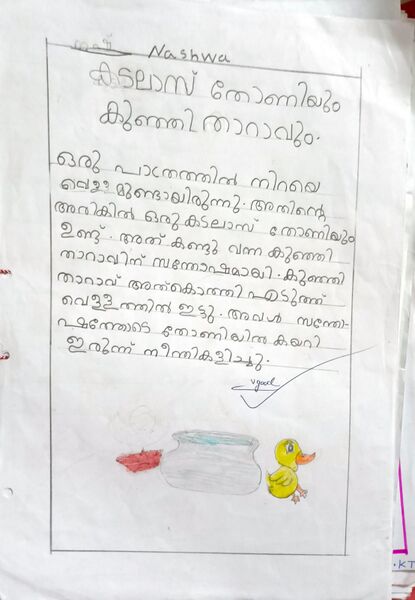 Nashwa
കടലാസ് തോണിയും
കുഞ്ഞി താറാവും.
ഒരു പാത്രത്തിൽ നിറയെ
വെള്ളമുണ്ടായിരുന്നു. അതിന്റെ
അരികിൽ ഒരു കടലാസ് തോണിയും
ഉണ്ട്. അത് കണ്ടു വന്ന കുഞ്ഞി
താറാവിന് സന്തോഷമായി. കുഞ്ഞി
താറാവ് അത്കൊത്തി എടുത്ത്
വെള്ളത്തിൽ ഇട്ടു. അവൾ സന്തോ-
ഷത്തോടെ തോണിയിൽ കയറി
ഇരുന്ന് നീന്തികളിച്ചു.
vgood
.KT